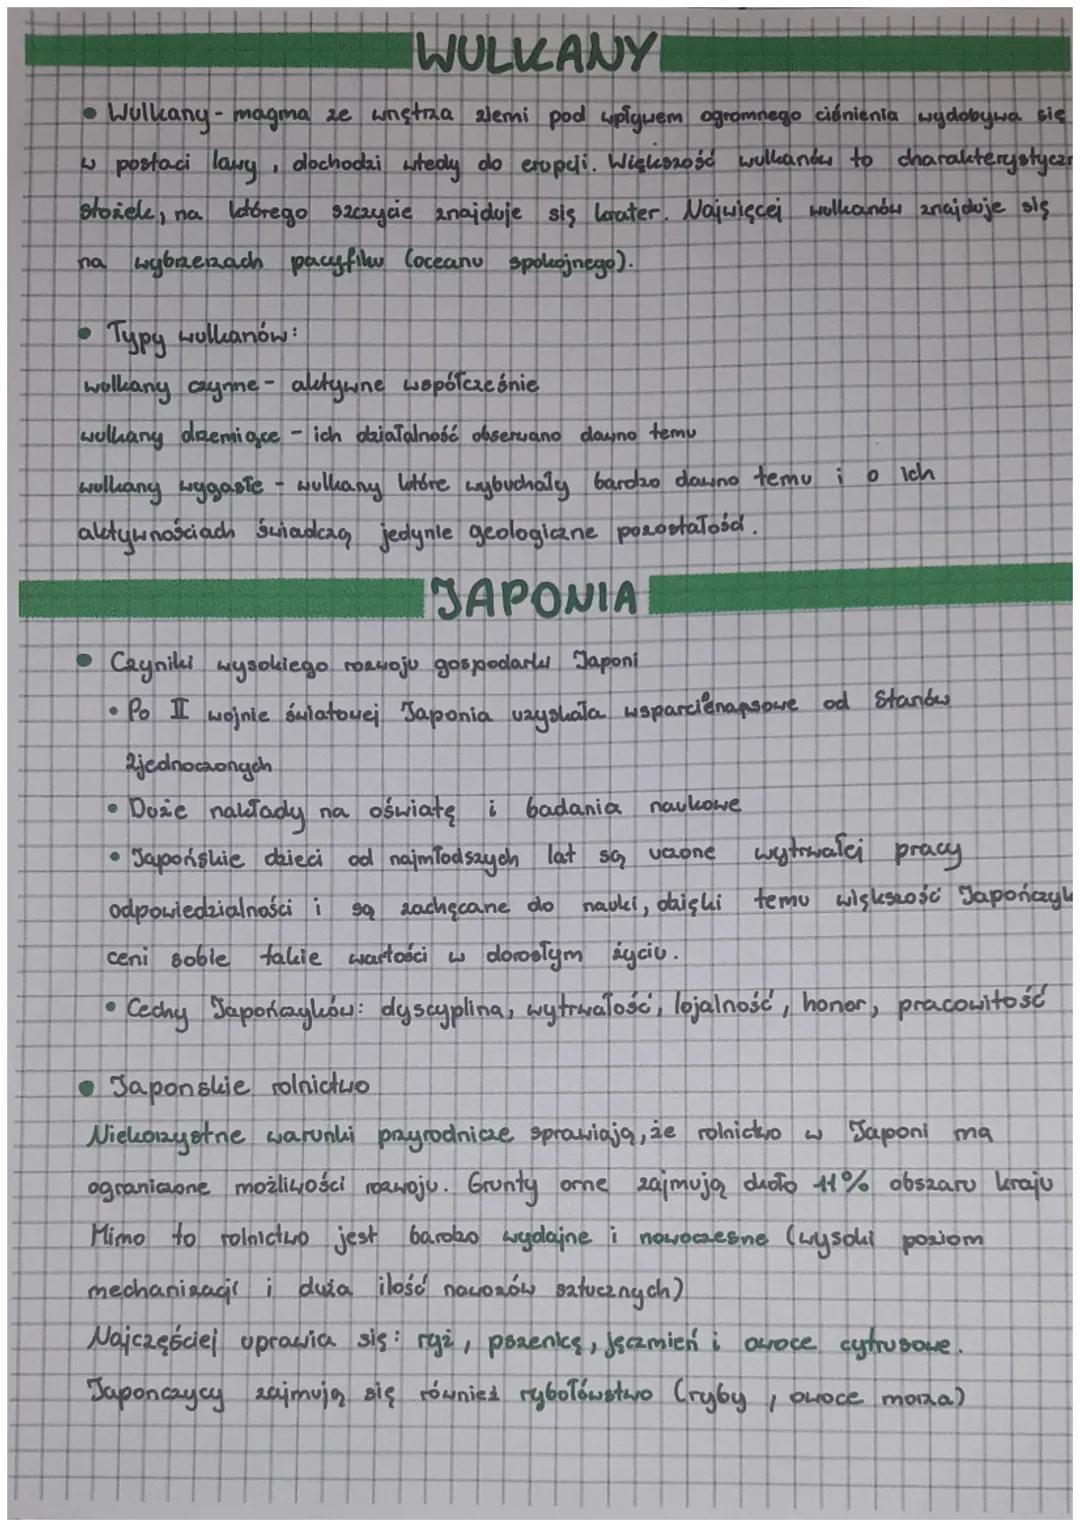 WULKANY
• Wulkany - magma ze wnętrza ziemi pod wpływem ogromnego ciśnienia wydobywa się
w postaci lawy, dochodzi wtedy do erupcji. Większość wulkanów to charakterystyczn
stożek, na którego szczycie znajduje się krater. Najwięcej wulkanów znajduje się
na wybrzeżach pacyfiku (oceanu spokojnego).
• Typy wulkanów:
wulkany czynne - aktywne współcześnie
wulkany drzemiące - ich działalność obserwano dawno temu
wulkany wygasłe - wulkany które wybuchały bardzo dawno temu i o ich
aktywnościach świadczą jedynie geologiczne pozostałości.
JAPONIA
• Czyniki wysokiego rozwoju gospodarki Japoni
• Po II wojnie światowej Japonia uzyskała wsparcie od Stanów
Zjednoczonych
• Duże nakłady na oświatę i badania naukowe
• Japońskie dzieci od najmłodszych lat są uczone wytrwałej pracy
odpowiedzialności i są zachęcane do nauki, dzięki temu większość Japończyk
ceni soble takie wartości w dorosłym życiu.
• Cechy Japończyków: dyscyplina, wytrwałość, lojalność, honor, pracowitość
• Japonskie rolnictwo
Niekorzystne warunki przyrodnicze sprawiają, że rolnictwo w Japoni ma
ograniczone możliwości rozwoju. Grunty orne zajmują około 11% obszaru kraju
Mimo to rolnictwo jest bardzo wydajne i nowoczesne (wysoki poziom
mechanizacji i duża ilość nawozów sztucznych)
Najczęściej uprawia się: ryż, pszenicę, jęczmień i owoce cytrusowe.
Japonczycy zajmują się również rybołówstwo (ryby, owoce morza)